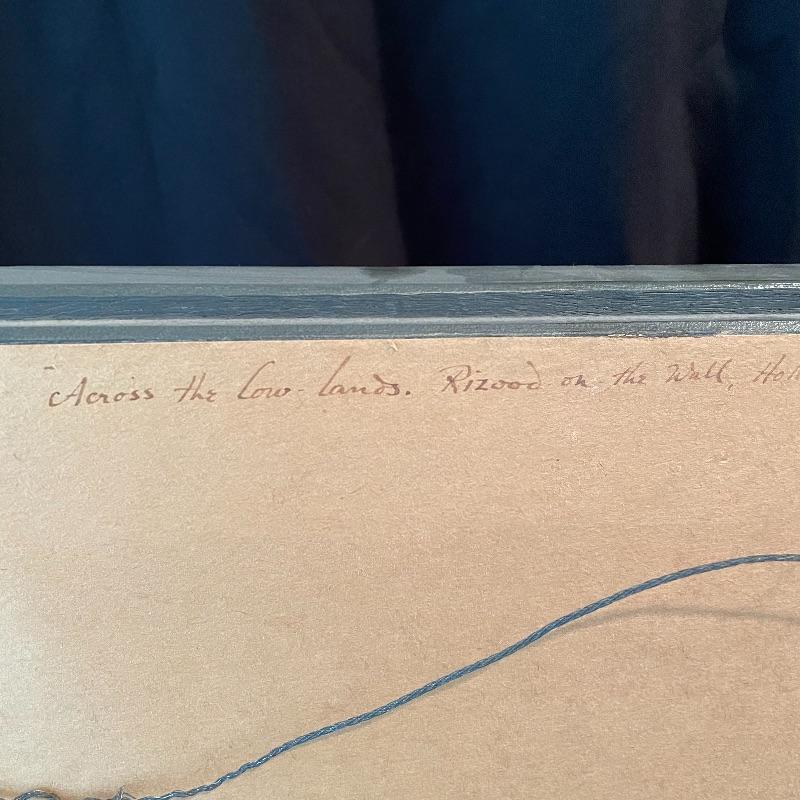 "Across the Low-lands. Rizood on the Wall, Holl